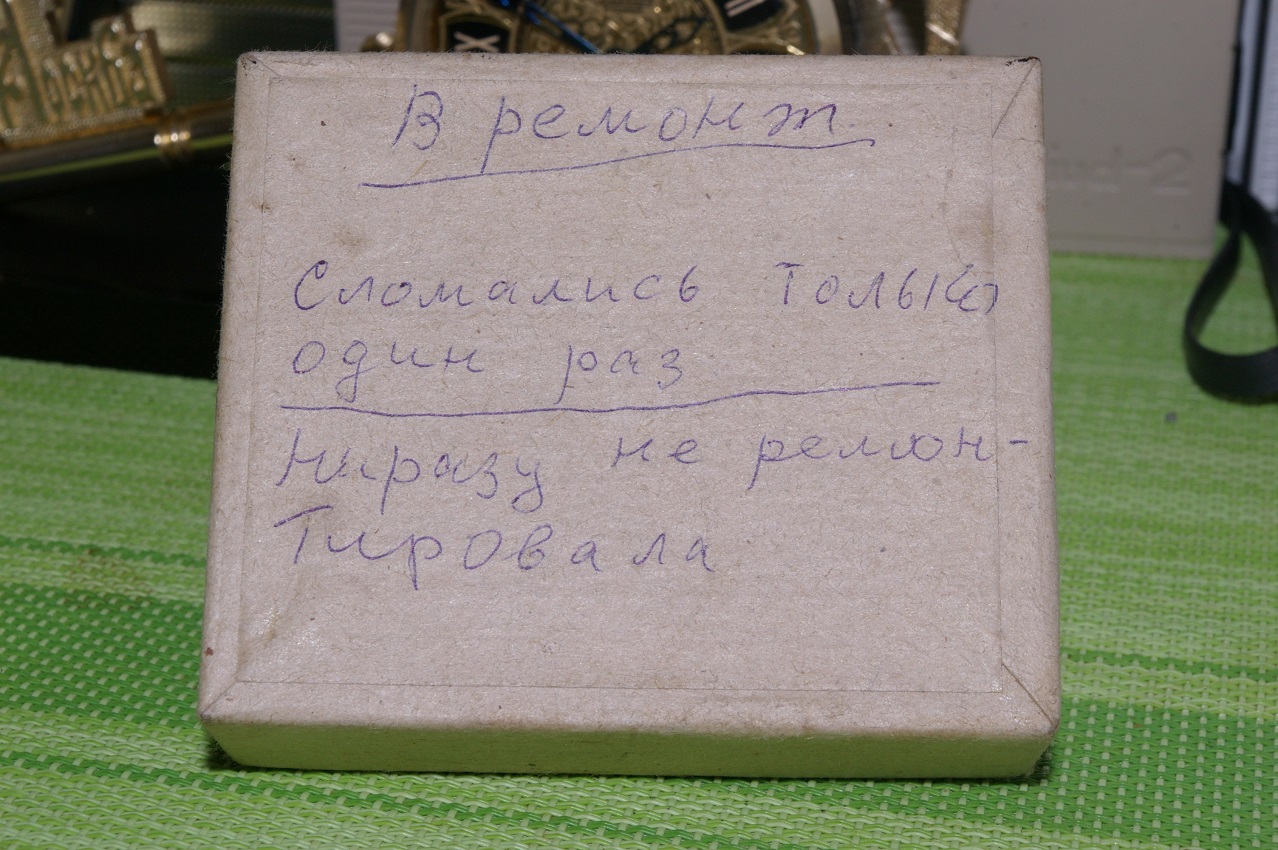 В ремонт
Сломались только
один раз
Ниразу не ремон-
тировала